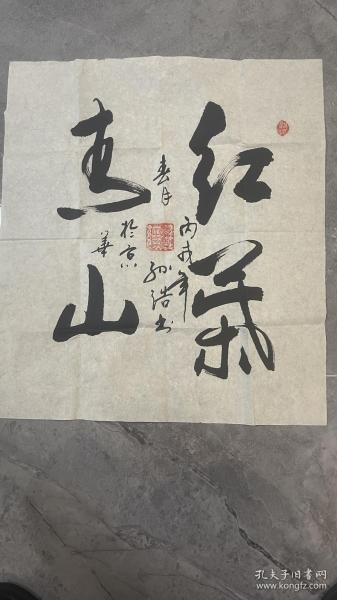 红叶
青山
丙戌年
春月
孙浩书
於京
华
孔夫子旧书网
www.kongfz.com